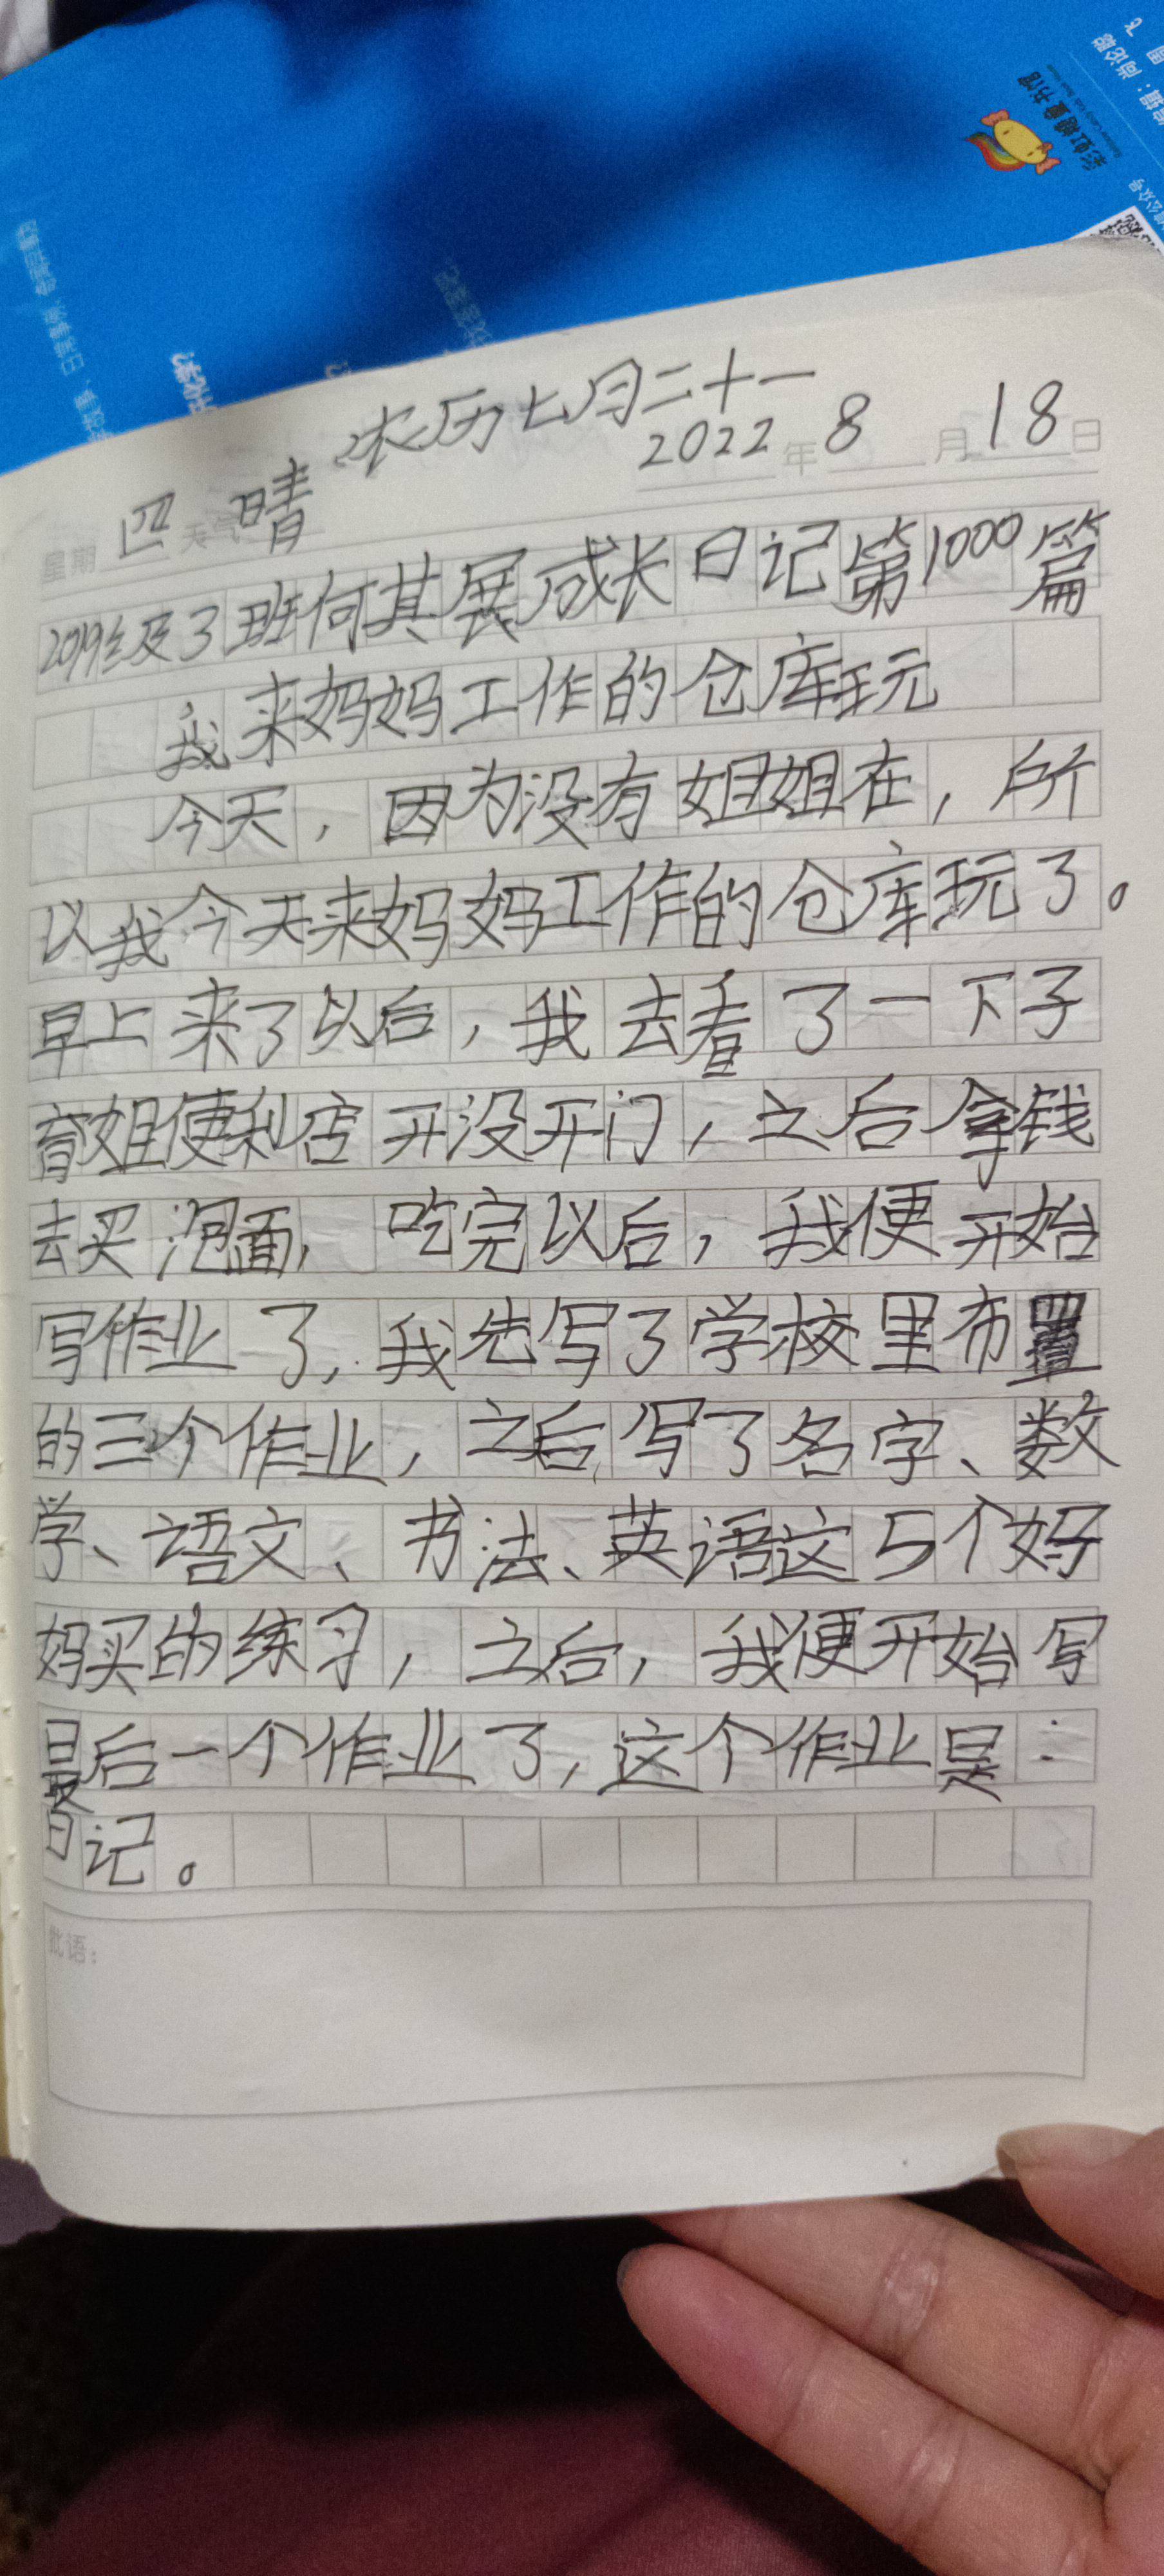 彩虹糖童书馆
农历七月二十一
2022年8月18日
星期 四 天气 晴
2019级3班何其展成长日记第1000篇
我来妈妈工作的仓库玩
今天，因为没有姐姐在，所
以我今天来妈妈工作的仓库玩了。
早上来了以后，我去看了一下子
育姐便利店开没开门，之后拿钱
去买泡面，吃完以后，我便开始
写作业了，我先写了学校里布置
的三个作业，之后写了名字、数
学、语文、书法、英语这5个好
妈买的练习，之后，我便开始写
最后一个作业了，这个作业是：
日记。
批语：